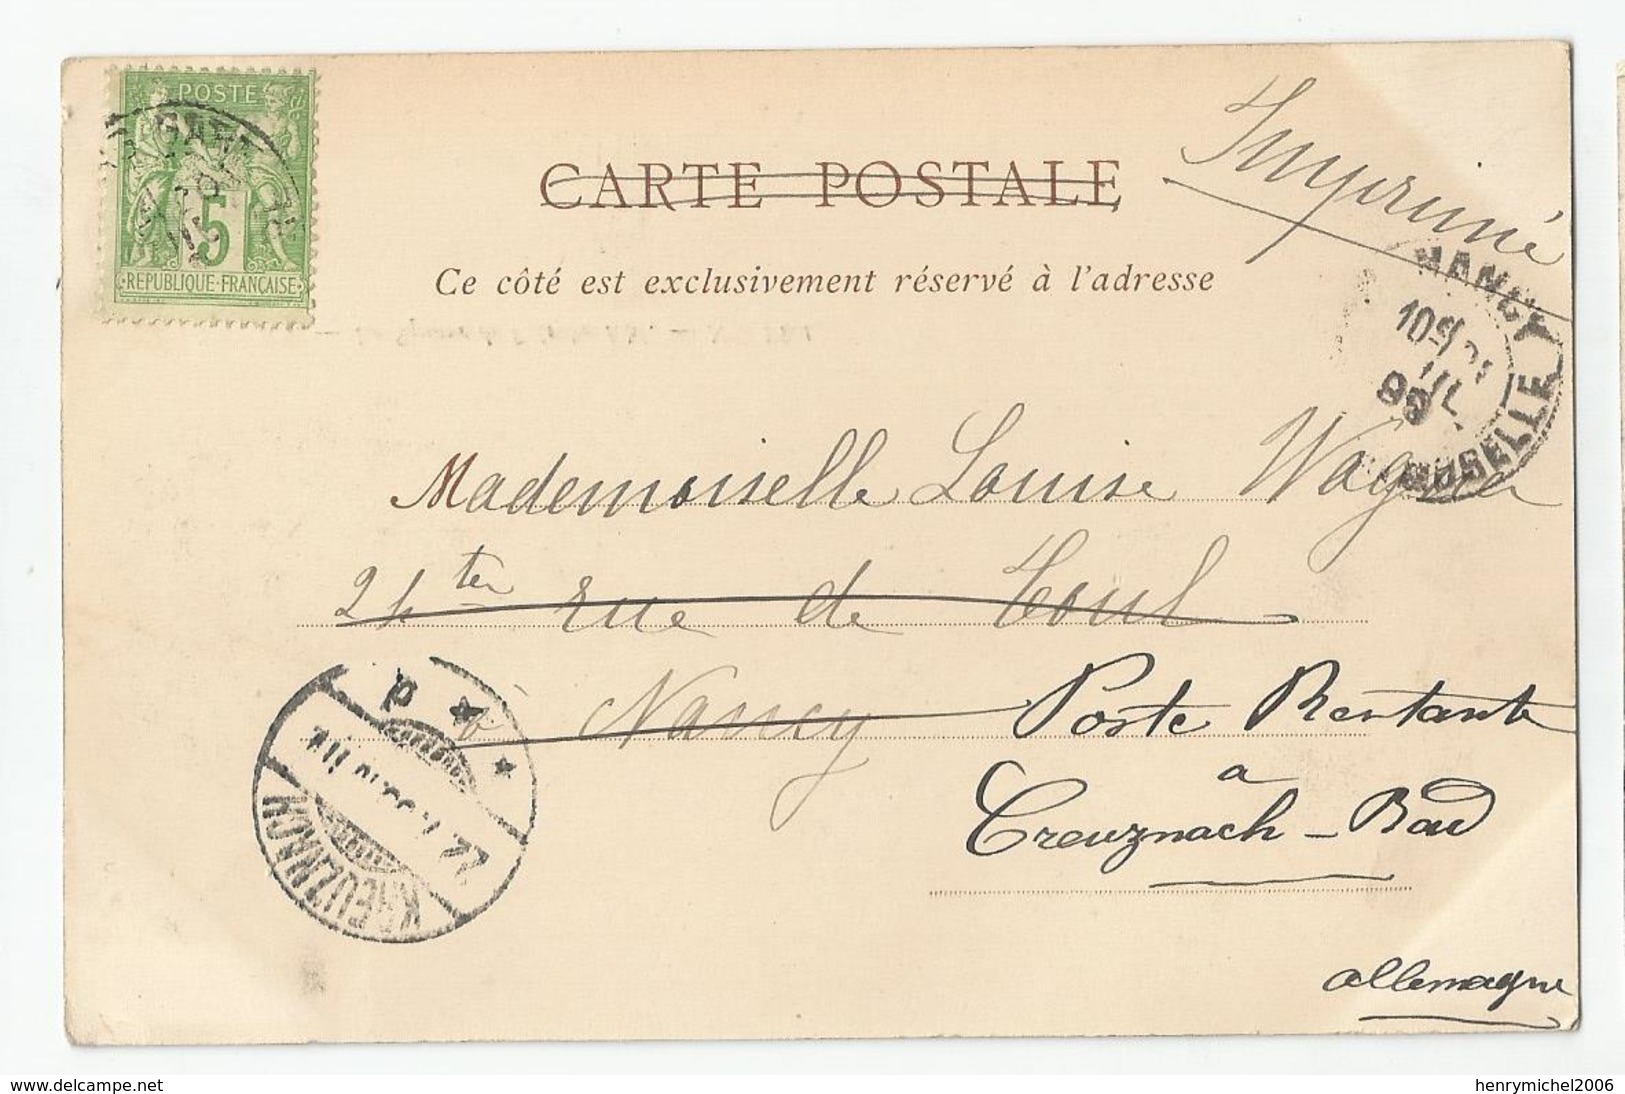 POSTE
5
REPUBLIQUE FRANCAISE
CARTE POSTALE
Imprimé
Ce côté est exclusivement réservé à l'adresse
NANCY
MOSELLE
Mademoiselle Louise Wagner
24 ter rue de Toul
à Nancy
Poste Restante
a
Creuznach-Bad
allemagne
KREUZNACH
www.delcampe.net
henrymichel2006